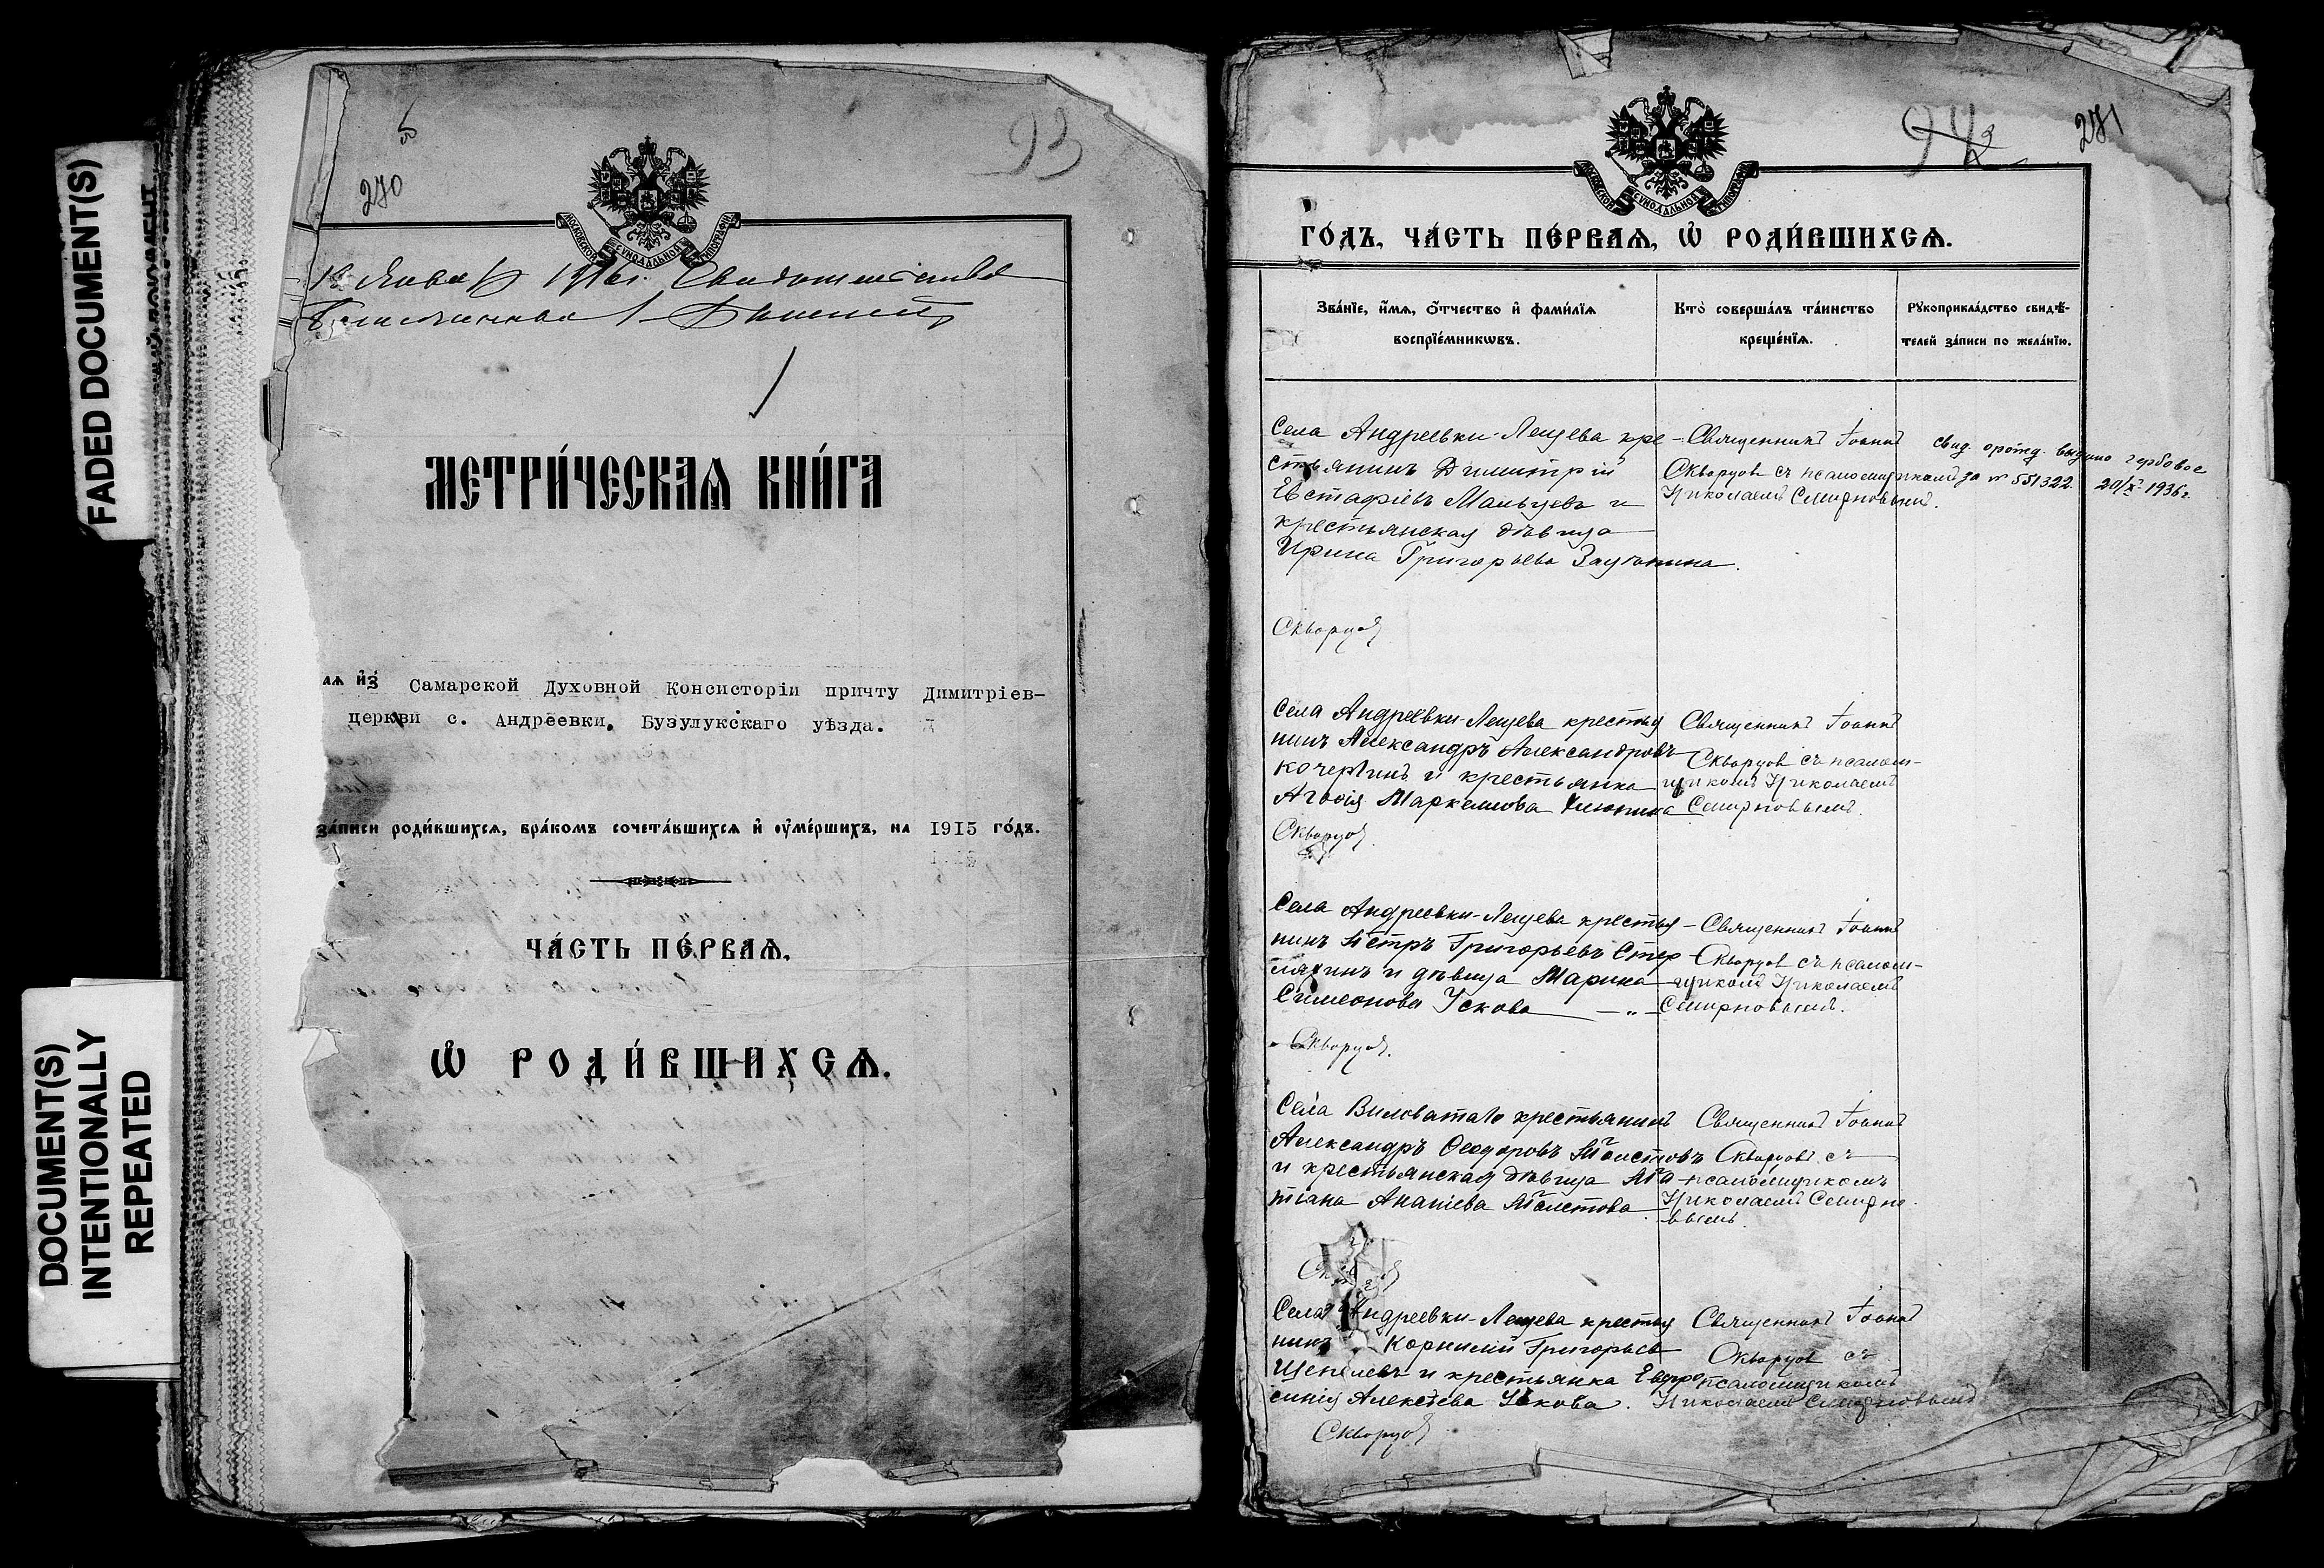 FADED DOCUMENT(S)
DOCUMENT(S)
INTENTIONALLY
REPEATED
270
93
МОСКОВСКОЙ СѴНОДАЛЬНОЙ ТИПОГРАФІИ
МЕТРИ́ЧЕСКАѦ КНИ́ГА
аѧ и҆з̾ Самарской Духовной Консисторіи причту Димитріев-
церкви с. Андреевки, Бузулукскаго уѣзда.
за́писи роди́вшихсѧ, бра́комъ сочета́вшихсѧ и҆ ᲂу҆ме́ршихъ, на 1915 го́дъ.
ЧА́СТЬ ПЕ́РВАѦ,
Ѡ҆ РОДИ́ВШИХСѦ.
271
МОСКОВСКОЙ СѴНОДАЛЬНОЙ ТИПОГРАФІИ
ГО́ДЪ, ЧА́СТЬ ПЕ́РВАѦ, Ѡ҆ РОДИ́ВШИХСѦ.
Зва́нїе, и҆́мѧ, ѻ҆́тчество и҆ фами́лїѧ
воспрїе́мникѡвъ.
Кто̀ соверша́лъ та́инство
креще́нїѧ.
Рꙋкоприкла́дство свидѣ́-
телей за́писи по жела́нїю.
Села Андреевки-Лещева кре-
стьянинъ Димитрій
Евстафіевъ Мальцевъ и
крестьянская дѣвица
Ирина Григорьева
Скворцов
Священникъ Іоаннъ
Скворцовъ съ псаломщикомъ
Николаемъ Смирновымъ.
свид. о рожд. выдано гербовое
за № 551322 20/X 1936 г.
Села Андреевки-Лещева крестья
нинъ Александръ Александровъ
Кочергинъ и крестьянка
Агаѳія Маркелова
Скворцов
Священникъ Іоаннъ
Скворцов съ псалом-
щикомъ Николаемъ
Смирновымъ.
Села Андреевки-Лещева крестья-
нинъ Петръ Григорьевъ Стер-
лядинъ и дѣвица Марина
Симеонова Ускова
Скворцов.
Священникъ Іоаннъ
Скворцов съ псалом-
щикомъ Николаемъ
Смирновымъ.
Села Виловатаго крестьянинъ
Александръ Ѳеодоровъ Толстовъ
и крестьянская дѣвица Та-
тіана Ананіева Толстова
Священникъ Іоаннъ
Скворцовъ съ
псаломщикомъ
Николаемъ Смирно-
вымъ.
Села Андреевки-Лещева крестья
нинъ Корнилій Григорьев
Щепелевъ и крестьянка Евфро
синія Алексѣева Ускова.
Скворцов
Священникъ Іоаннъ
Скворцов съ
псаломщикомъ
Николаемъ Смирновымъ